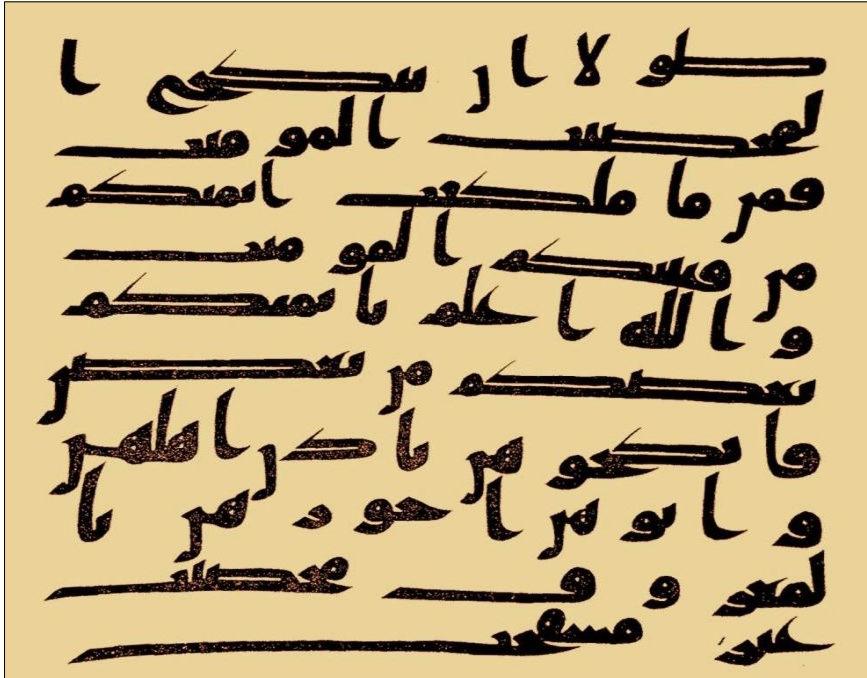 طولا ان ينكح ا
لمحصنت المومنت
فمن ما ملكت ايمنكم
من فتيتكم المومنت
و الله اعلم بايمنكم
بعضكم من بعض
فانكحوهن باذن اهلهن
و اتوهن اجورهن با
لمعروف محصنت
غير مسفحت